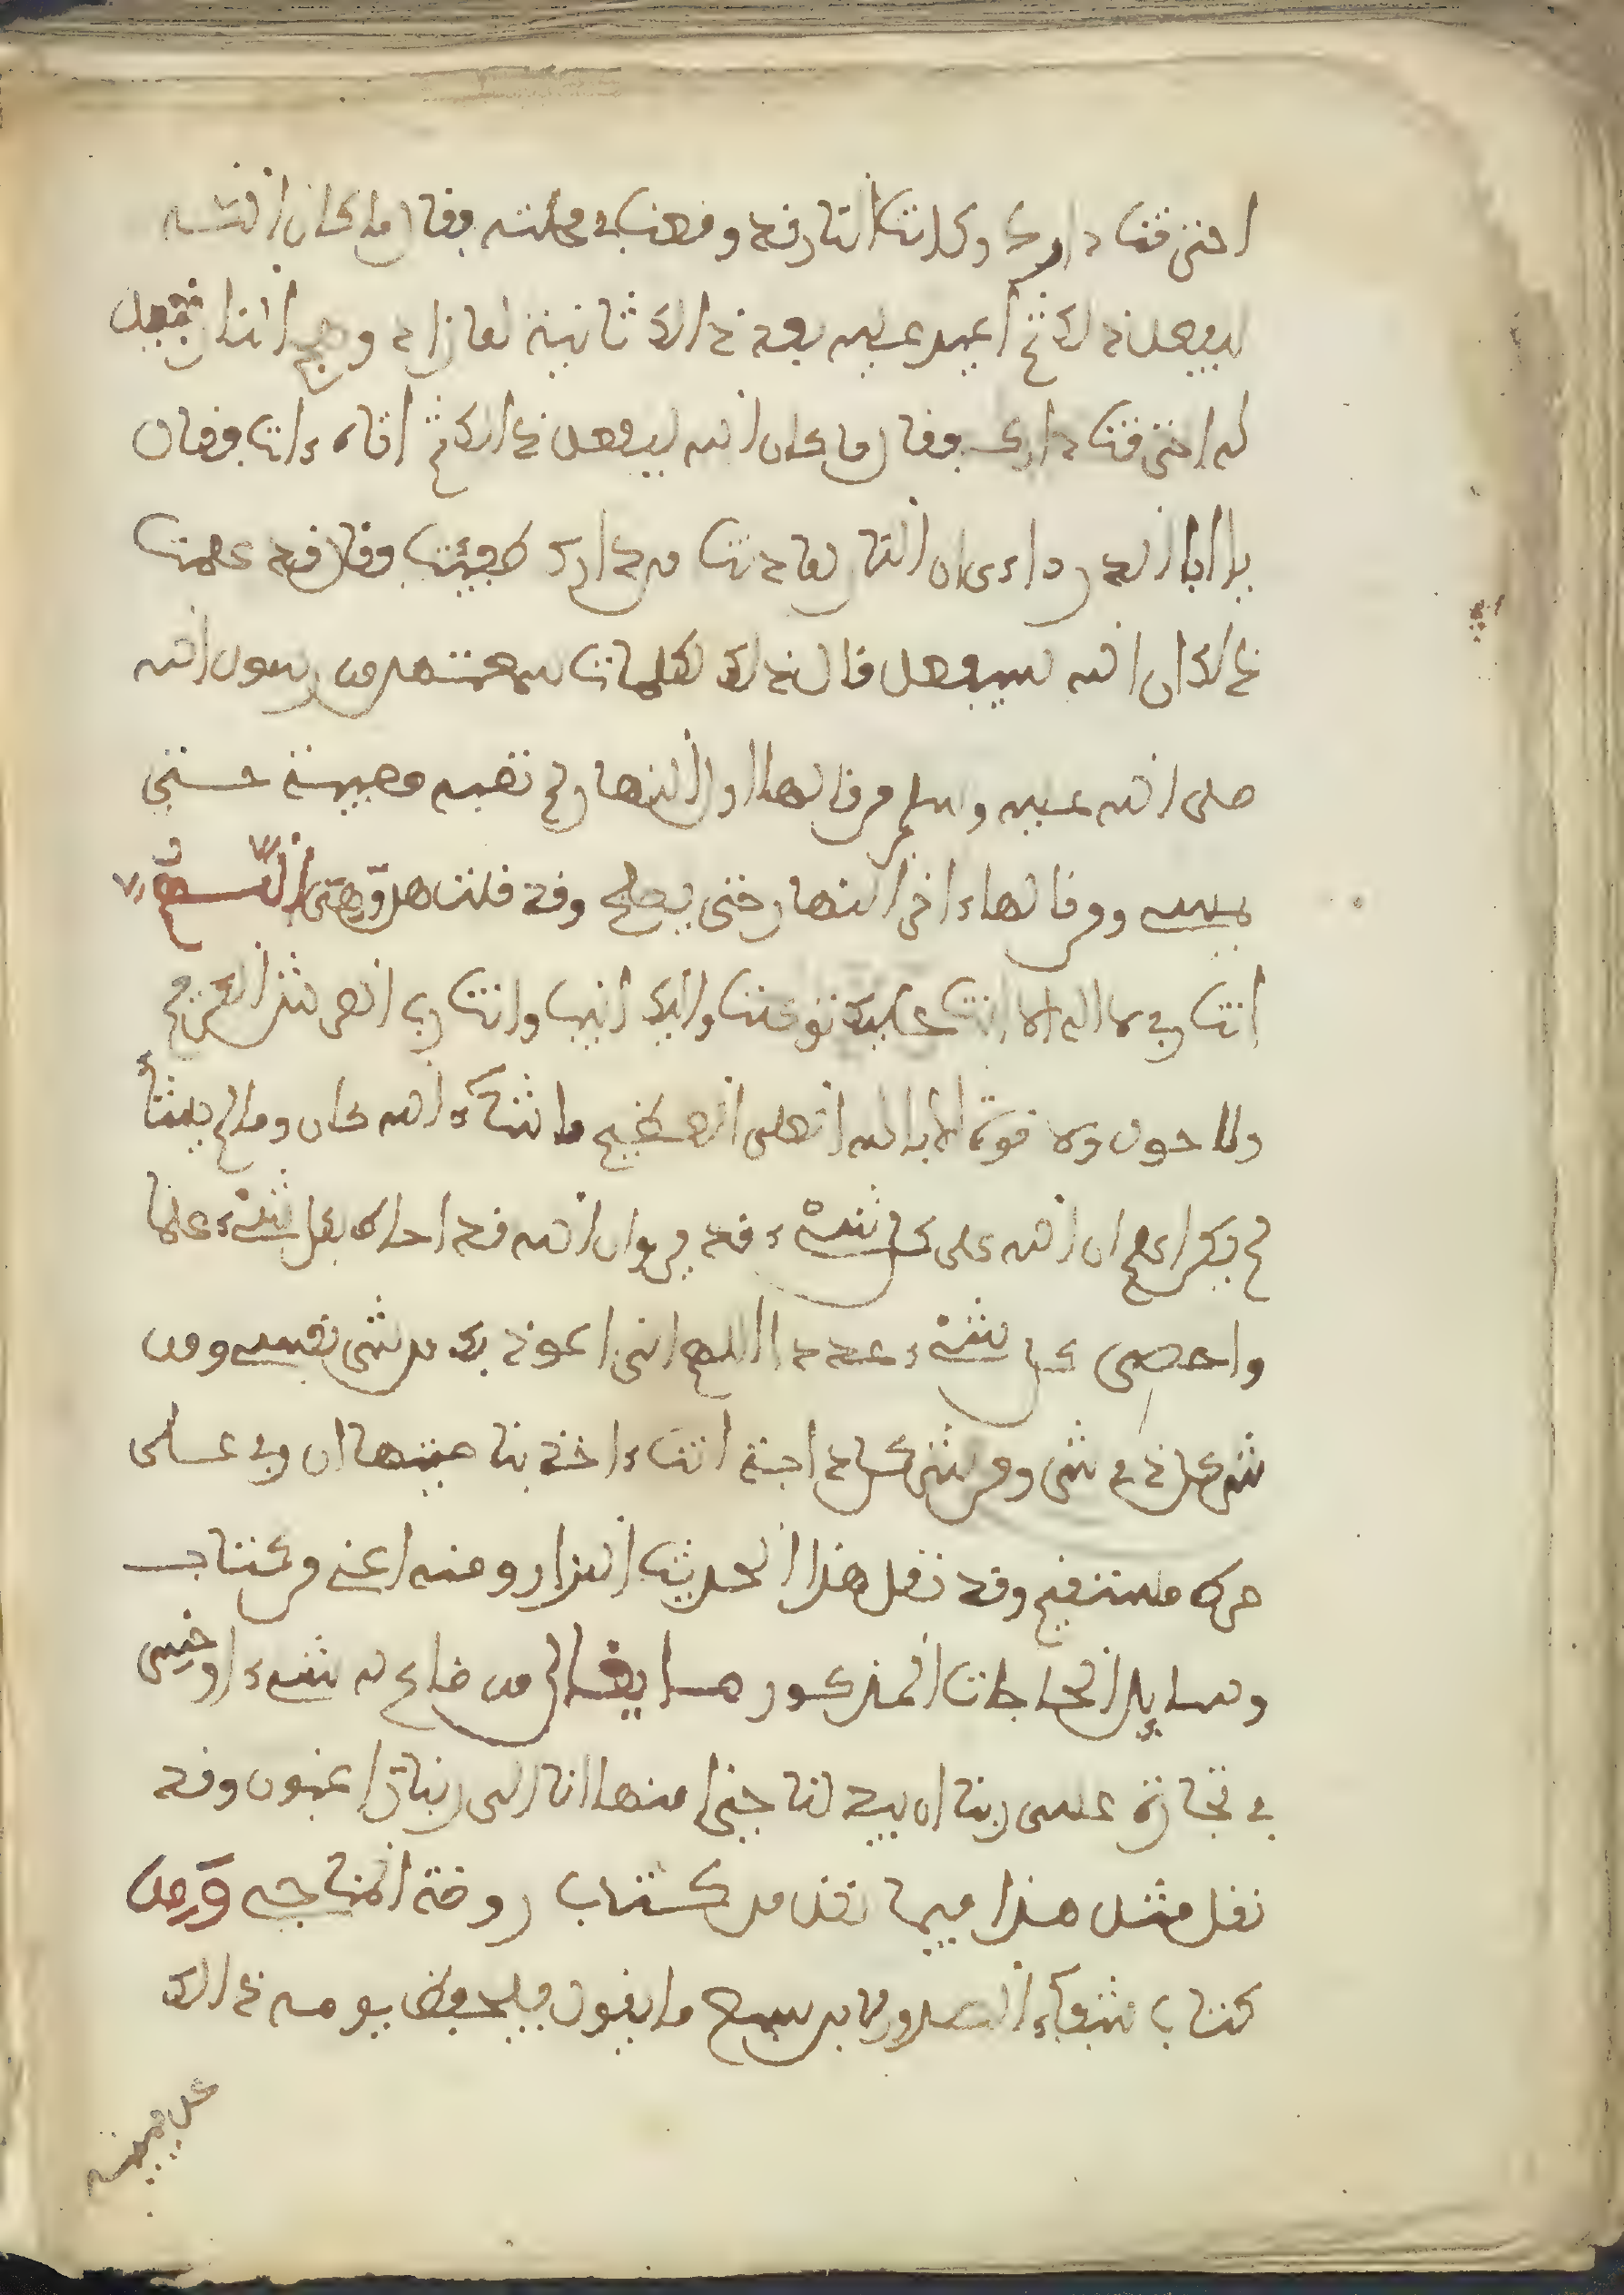 احترقت دارك وكانت النار قد وقعت في محلته فقال ما كان الله
ليفعل ذلك ثم اعيد عليه بعد ذالك ثانية
له احترقت دارك فقال ما كان الله ليفعل ذالك ثم اتاه ءات فقال
يا ابا الدرداء ان النار لما دنت من دارك طفئت فقال قد علمت
ذلك ان الله ليفعل قال ذلك لكلمات سمعتهن من رسول الله
صلى الله عليه وسلم من قالها اول النهار لم تصبه مصيبة حتى
يمسي ومن قالها ءاخر النهار حتى يصبح وقد قلتهن وهي اللهم
انت ربي لا اله الا انت عليك توكلت واليك انيب وانت رب العرش الكريم
ولا حول ولا قوة الا بالله العلي العظيم ما شآء الله كان وما لم يشأ
لم يكن اعلم ان الله على كل شيء قدير وان الله قد احاط بكل شيء علما
واحصى كل شيء عددا اللهم اني اعوذ بك من شر نفسي ومن
شر كل ذي شر ومن شر كل دابة انت ءاخذ بناصيتها ان ربي على
صراط مستقيم وقد نقل هذا الحديث البزار ومنه اعني من كتاب
وسايل الحاجات المذكور ما يقال من ضاع له شيء او خسر
في تجارة عسى ربنا ان يبدلنا خيرا منها انا الى ربنا راغبون وقد
نقل مثل هذا فيما نقل من كتاب روضة المناجي ومن
كتاب شفآء الصدور لابن سبع ما يقول فيحفظ يومه ذالك